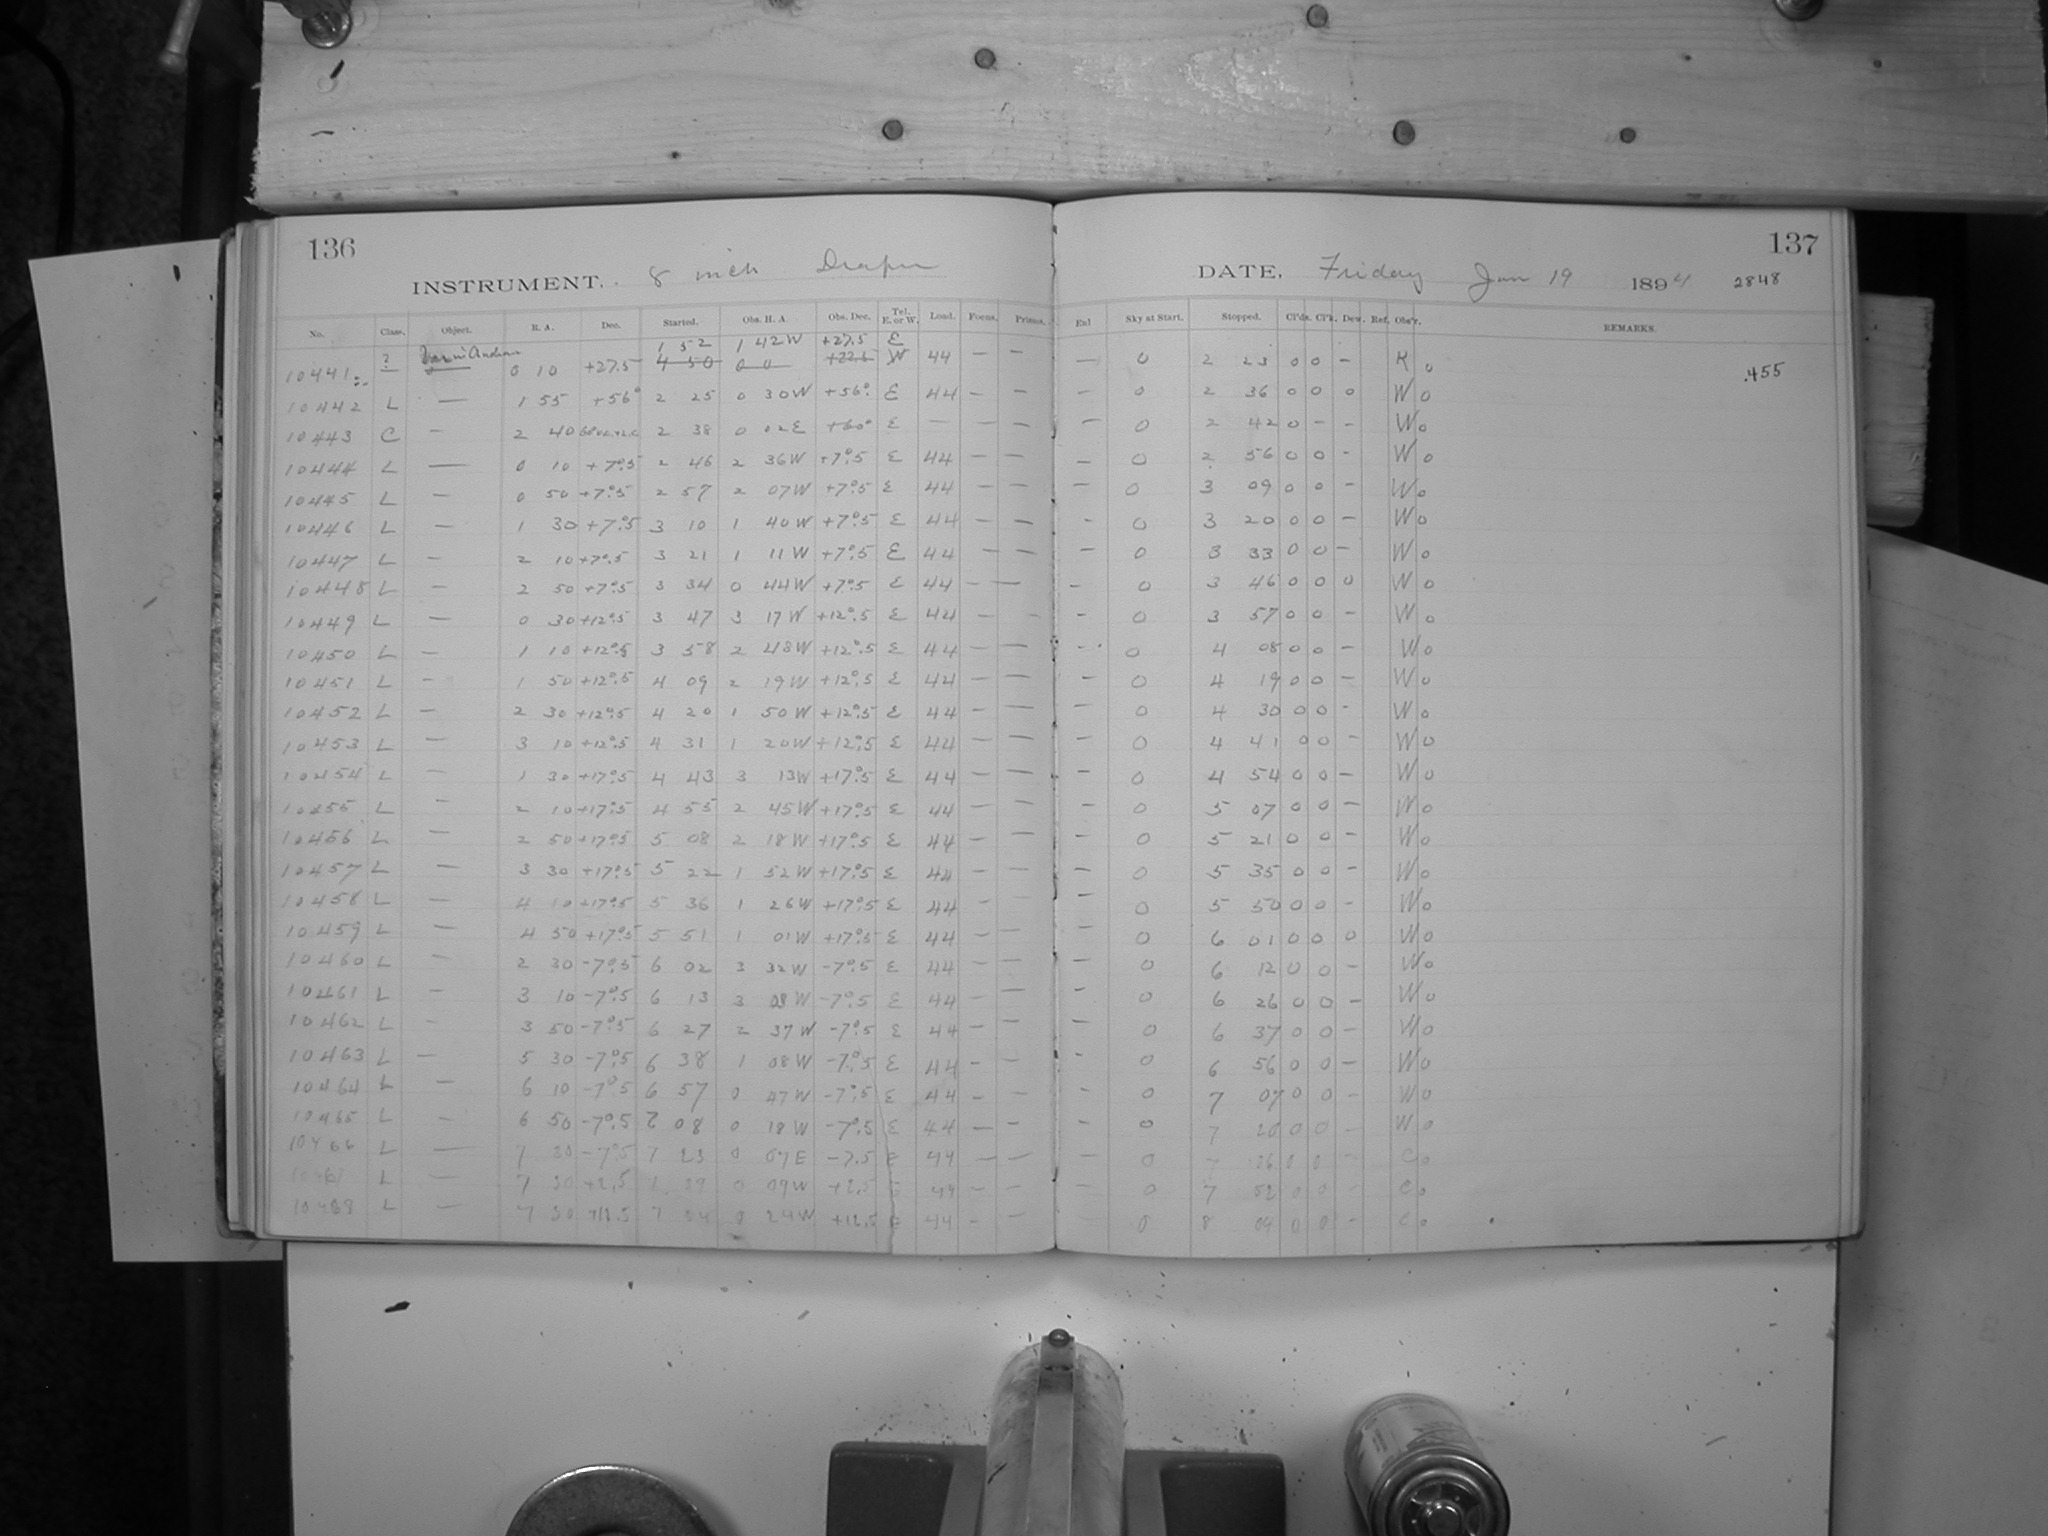 136
INSTRUMENT. 8 inch Draper
No. Class. Object. R. A. Dec. Started. Obs. H. A. Obs. Dec. Tel. E. or W. Load. Focus. Prisms.
1 52 1 42 W +27.5 E
10441 ? 0 10 +27.5 4 50 0 0 +22.5 W 44 — —
10442 L — 1 55 +56° 2 25 0 30 W +56° E 44 — —
10443 C — 2 40 2 38 0 02 E +60° E — —
10444 L — 0 10 +7°.5 2 46 2 36 W +7°.5 E 44 — —
10445 L — 0 50 +7°.5 2 57 2 07 W +7°.5 E 44 — —
10446 L — 1 30 +7°.5 3 10 1 40 W +7°.5 E 44 — —
10447 L — 2 10 +7°.5 3 21 1 11 W +7°.5 E 44 — —
10448 L — 2 50 +7°.5 3 34 0 44 W +7°.5 E 44 — —
10449 L — 0 30 +12°.5 3 47 3 17 W +12°.5 E 44 — —
10450 L — 1 10 +12°.5 3 58 2 48 W +12°.5 E 44 — —
10451 L — 1 50 +12°.5 4 09 2 19 W +12°.5 E 44 — —
10452 L — 2 30 +12°.5 4 20 1 50 W +12°.5 E 44 — —
10453 L — 3 10 +12°.5 4 31 1 20 W +12°.5 E 44 — —
10454 L — 1 30 +17°.5 4 43 3 13 W +17°.5 E 44 — —
10455 L — 2 10 +17°.5 4 55 2 45 W +17°.5 E 44 — —
10456 L — 2 50 +17°.5 5 08 2 18 W +17°.5 E 44 — —
10457 L — 3 30 +17°.5 5 22 1 52 W +17°.5 E 44 — —
10458 L — 4 10 +17°.5 5 36 1 26 W +17°.5 E 44 — —
10459 L — 4 50 +17°.5 5 51 1 01 W +17°.5 E 44 — —
10460 L — 2 30 -7°.5 6 02 3 32 W -7°.5 E 44 — —
10461 L — 3 10 -7°.5 6 13 3 03 W -7°.5 E 44 — —
10462 L — 3 50 -7°.5 6 27 2 37 W -7°.5 E 44 — —
10463 L — 5 30 -7°.5 6 38 1 08 W -7°.5 E 44 — —
10464 L — 6 10 -7°.5 6 57 0 47 W -7°.5 E 44 — —
10465 L — 6 50 -7°.5 7 08 0 18 W -7°.5 E 44 — —
10466 L — 7 30 -7°.5 7 23 0 07 E -7.5 E 44 — —
L — 7 30 +2.5 7 39 0 09 W +2.5 E 44 — —
10468 L — 7 30 +12.5 7 54 0 24 W +12.5 E 44 — —
137
DATE. Friday Jan 19 1894 2848
Enl Sky at Start. Stopped. Cl'ds. Cl'k. Dew. Ref. Obs'r. REMARKS.
— 0 2 23 0 0 — K 0 .455
— 0 2 36 0 0 0 W 0
— 0 2 42 0 — — W 0
— 0 2 56 0 0 — W 0
— 0 3 09 0 0 — W 0
— 0 3 20 0 0 — W 0
— 0 3 33 0 0 — W 0
— 0 3 46 0 0 0 W 0
— 0 3 57 0 0 — W 0
— 0 4 08 0 0 — W 0
— 0 4 19 0 0 — W 0
— 0 4 30 0 0 — W 0
— 0 4 41 0 0 — W 0
— 0 4 54 0 0 — W 0
— 0 5 07 0 0 — W 0
— 0 5 21 0 0 — W 0
— 0 5 35 0 0 — W 0
— 0 5 50 0 0 — W 0
— 0 6 01 0 0 0 W 0
— 0 6 12 0 0 — W 0
— 0 6 26 0 0 — W 0
— 0 6 37 0 0 — W 0
— 0 6 56 0 0 — W 0
— 0 7 07 0 0 — W 0
— 0 7 20 0 0 — W 0
— 0 7 36 0 0 — C 0
— 0 7 52 0 0 — C 0
0 8 09 0 0 — C 0